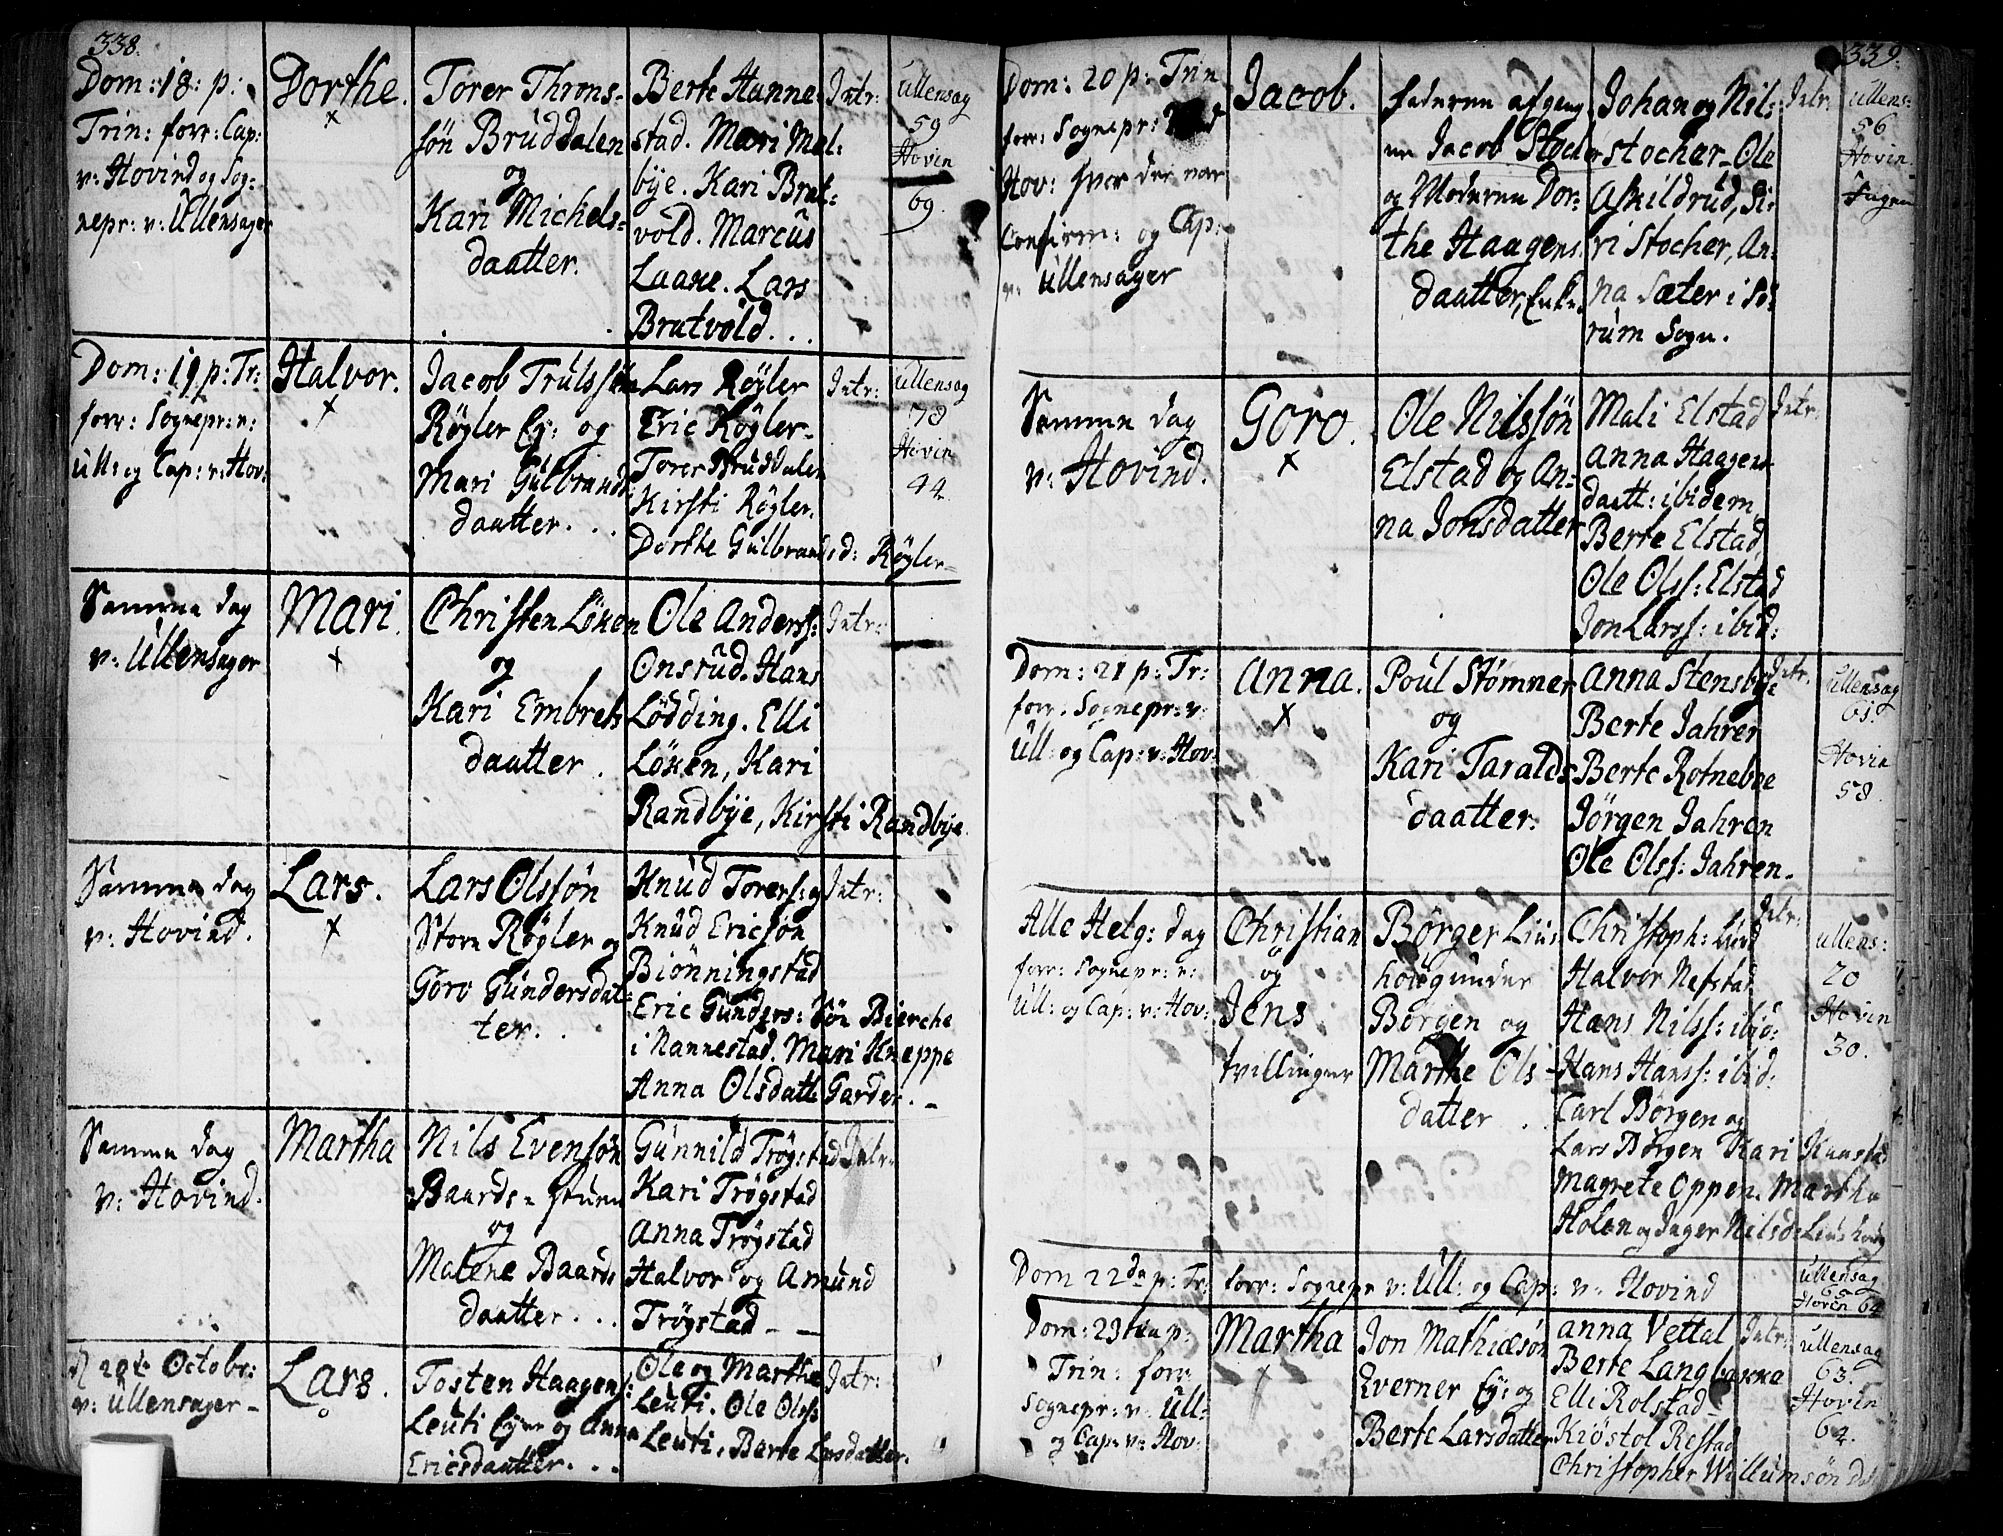 338.
Dom: 18: p:
Trin: forr: Cap:
v: Hovind og Sog:
nepr: v: Ullensager
Dorthe.
Torer Throns-
sön Bruddalen
og
Kari Michels-
daatter.
Berte Hanne-
stad. Mari Mel:
bye. Kari Brat-
vold. Marcus
Laake. Lars
Bratvold...
Intr:
Ullensag
59
Hovin
69
Dom: 19 p: Tr:
forr: Sognepr: v:
Ull: og Cap: v: Hov:
Halvor.
Jacob Trulssön
Røgler Ey: og
Mari Gulbrands
daatter...
Lars Røgler
Eric Røgler-
Torer Bruddalen
Kirsti Røgler.
Dorthe Gulbrandsd: Røgler-
Intr:
Ullensag
78
Hovin
44.
Samme dag
v: Ullensager
Mari.
Christen Löken
og
Kari Embrets
daatter.
Ole Anderss:
Onsrud. Hans
Lödding. Elli
Löken, Kari
Randbye, Kirsti Randbye.
Intr:
Samme dag
v: Hovind.
Lars.
Lars Olssön
Store Røgler og
Goro Gundersdat-
ter...
Knud Torers: og
Knud Ericsön
Biönningstad
Eric Gunders: Bierke
i Nannestad. Mari Kneppe
Anna Olsdatt: Garder.-
Intr:
Samme dag
v: Hovind.
Martha
Nils Evensön
Baards-
og
Malene Baards
daatter...
Gunnild Trøgstad
Kari Trøgstad
Anna Trøgstad
Halvor og Amund
Trøgstad--
Intr:
d 20de Octobr:
v: Ullensager-
Lars.
Tosten Haagens:
Leuti Eyer og Anna
Ericsdaatter...
Ole og Marthe
Leuti. Ole Olss:
Leuti. Berte Larsdatter.
Intr:
339.
Dom: 20 p: Trin
forr: Sognepr: ved
Hov: hvor der var
Confirm: og Cap:
v: Ullensager
Jacob.
Faderen afgang-
ne Jacob Stocker
og Moderen Dor:
the Haagens
daatter, Enke.
Johan og Nil:
Stocker. Ole
Askildrud, Si-
ri Stocker, An-
na Sæter i Sö-
rum Sogn.
Intr.
Ullens:
56
Hovin
Ingen
Samme dag
v: Hovind.
Goro.
Ole Nilssön
Elstad og An-
na Jonsdatter
Mali Elstad
Anna Haagens
daatt: ibidem
Berte Elstad,
Ole Olss: Elstad
Jon Larss: ibid:
Intr.
Dom: 21 p: Tr:
forr. Sognepr: v:
Ull: og Cap: v: Hov:
Anna.
Poul Stømner
og
Kari Taralds
daatter.
Anna Stensbye
Berte Jahren
Berte Rotneboe
Jörgen Jahren
Ole Olss: Jahren.
Intr.
Ullensag
61.
Hovin
58.
Alle Helg: dag
forr: Sognepr: v:
Ull: og Cap: v: Hov:
Christian
og
Jens
tvillinger
Börger Lius
houg under
Borgen og
Marthe Ols-
datter..
Christoph:
Halvor Nefstad
Hans Nilss: ibid:
Hans Hanss: ibid:
Carl Börgen og
Lars Börgen Kari
Magrete Oppen. Martha
Holen og Inger Nilsd: Liushoug
Intr:
Ullens:
20
Hovin
30.
Dom 22da p: Tr: forr: Sognepr v: Ull: og Cap: v: Hovind
Ullensag
60
Hovin 64
Dom: 23tia p:
Trin: forr:
Sognepr: v: Ull:
og Cap: v: Hov:
Martha
Jon Mathiæsön
Everner Ey: og
Berte Larsdatter
Anna Vettal
Berte Langbakke
Elli Rolstad-
Kiöstol Restad
Christopher Willumsön
Intr:
Ullensag
63.
Hovin
64.